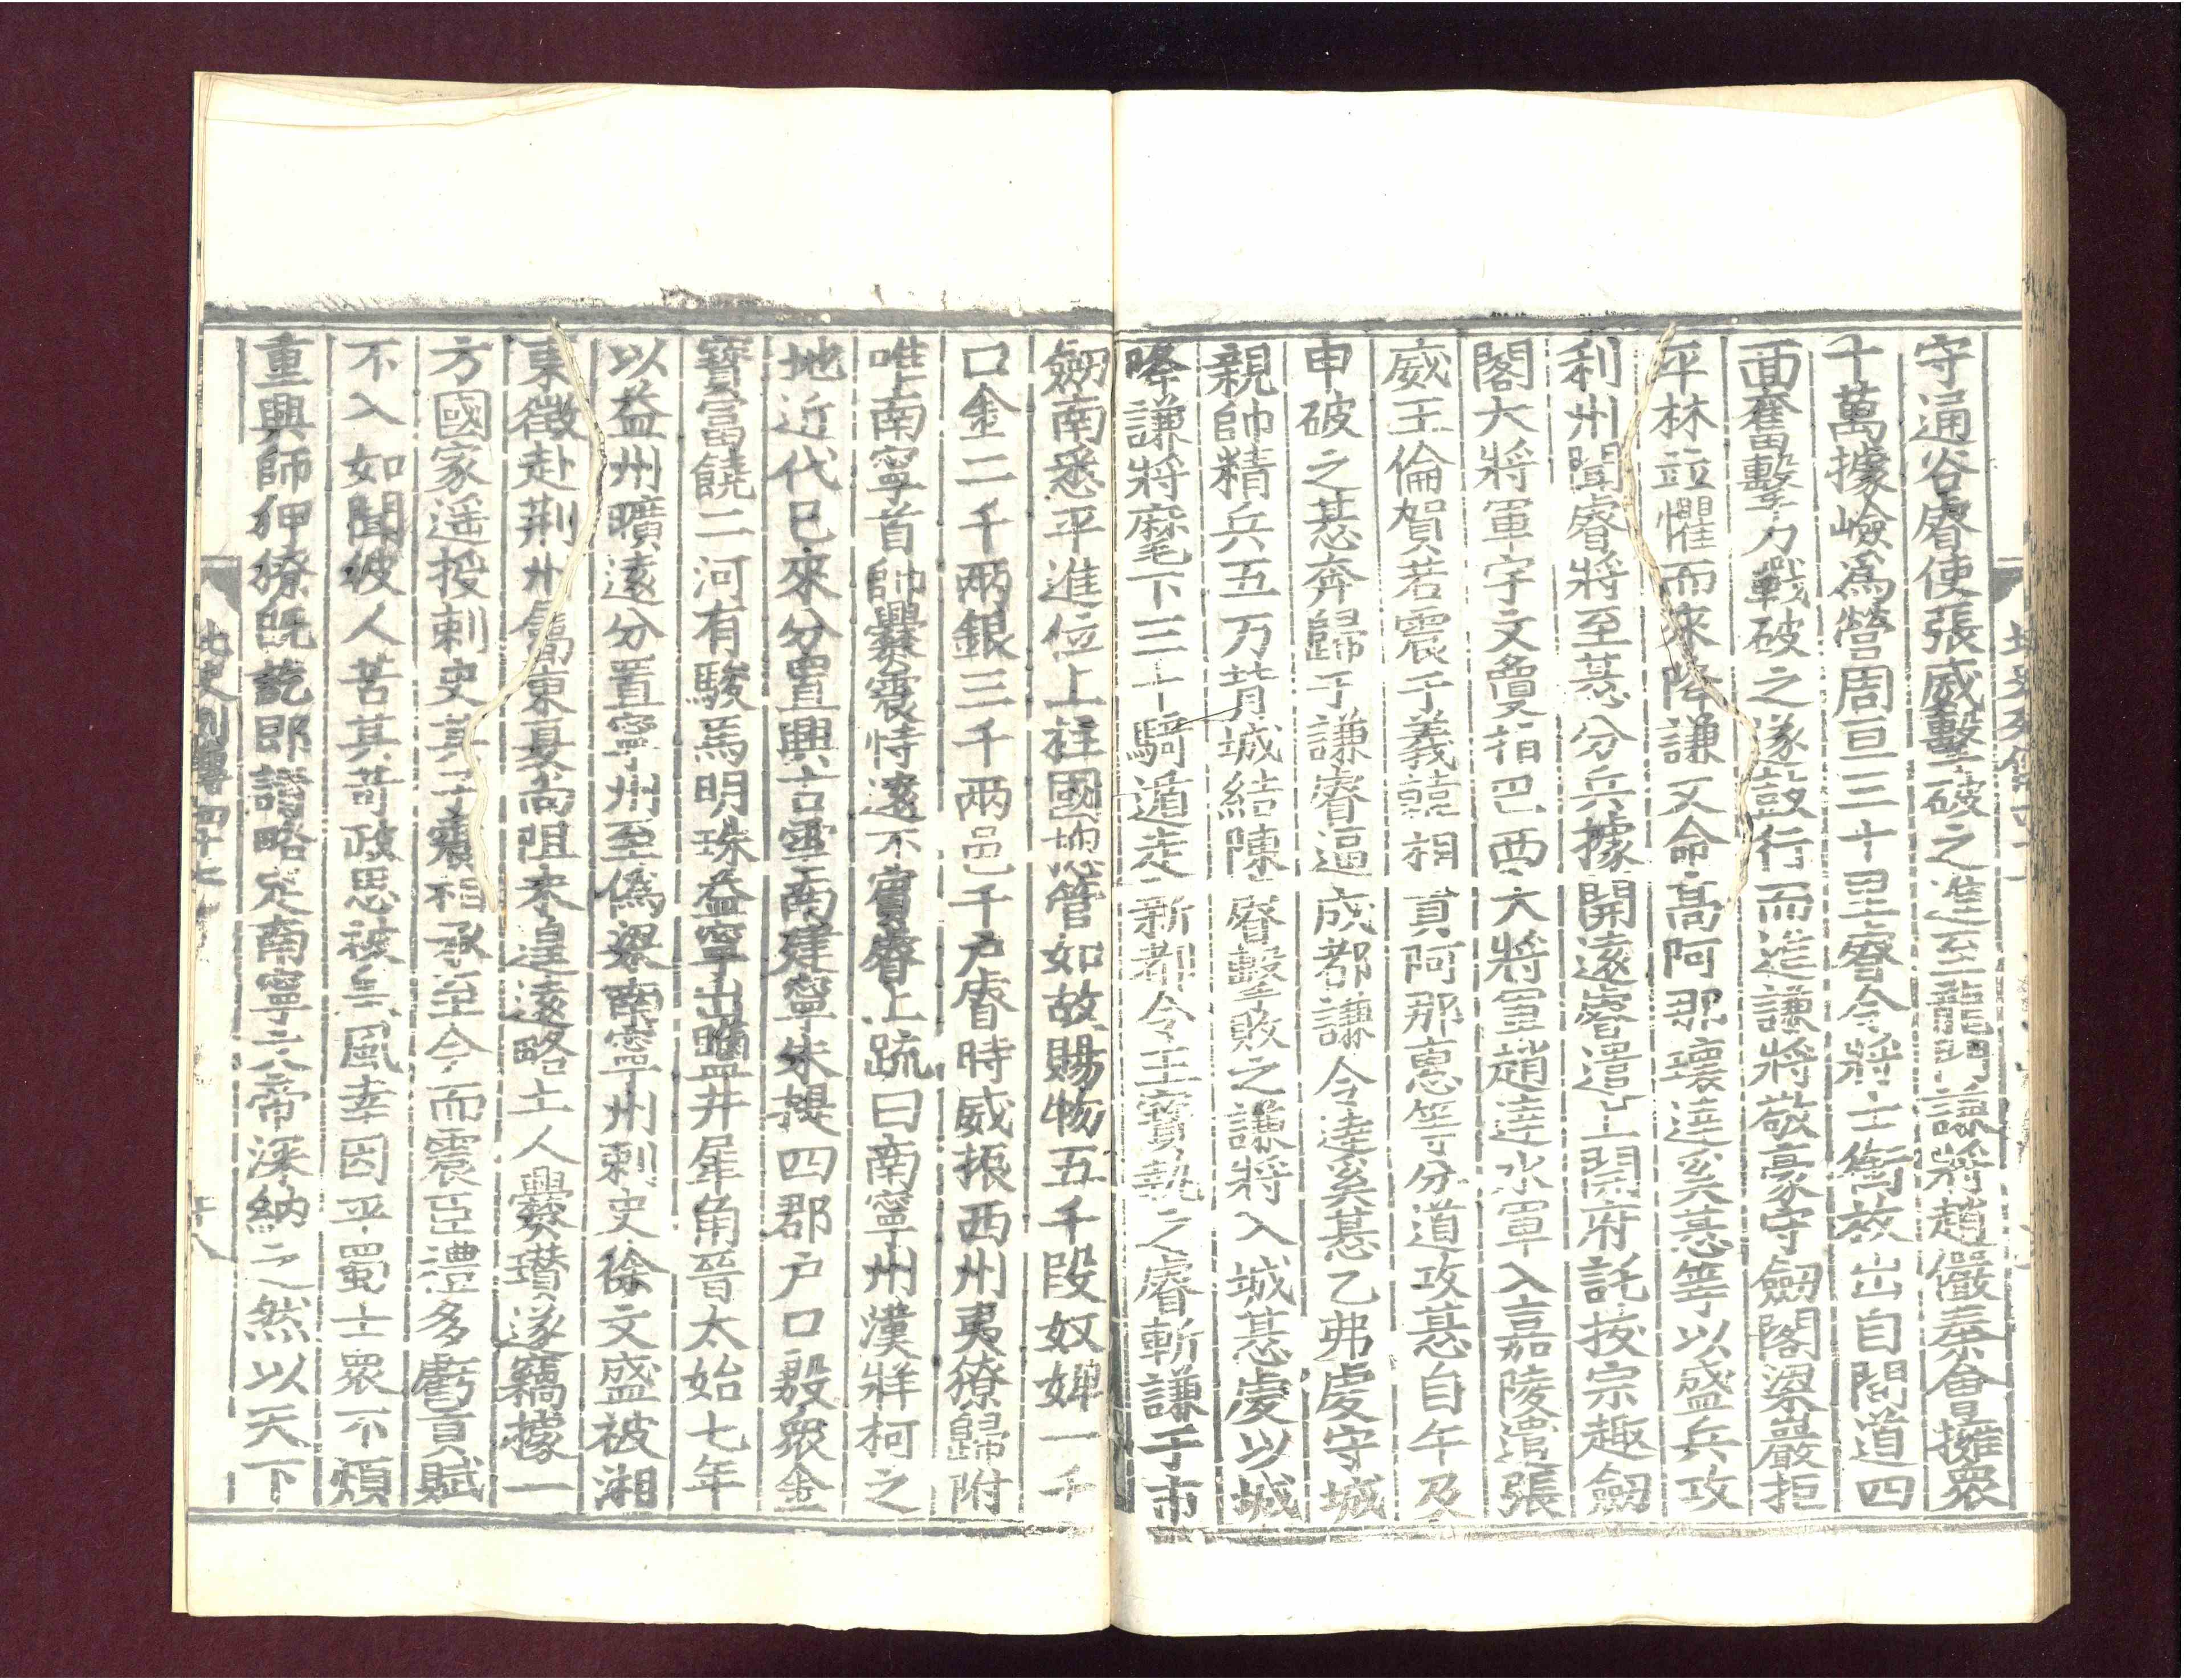 守通谷睿使張威擊破之進至龍門謙將趙儼秦會擁衆
十萬據嶮爲營周亘三十里睿令將士銜枚出自間道四
面奮擊力戰破之遂鼓行而進謙將敬豪守劒閣梁巖拒
平林並懼而來降謙又命高阿那壞達奚惎等以盛兵攻
利州聞睿將至惎分兵據開遠睿遣上開府託拔宗趣劒
閣大將軍宇文夐拍巴西大將軍趙達水軍入嘉陵遣張
威王倫賀若震于義韓相貴阿那惠等分道攻惎自午及
申破之惎奔歸于謙睿逼成都謙令達奚惎乙弗虔守城
親帥精兵五万背城結陳睿擊敗之謙將入城惎虔以城
降謙將麾下三十騎遁走新都令王寶執之睿斬謙于市
劒南悉平進位上柱國揔管如故賜物五千段奴婢一千
口金二千兩銀三千兩邑千户睿時威振西州夷獠歸附
唯南寧首帥爨震恃遠不賓睿上疏曰南寧州漢牂柯之
地近代已來分置興古雲南建寧朱提四郡户口殷衆金
寶富饒二河有駿馬明珠益寧出鹽井犀角晉太始七年
以益州曠遠分置寧州至僞梁南寧州刺史徐文盛被湘
東徵赴荆州屬東夏尚阻未遑遠略土人爨瓚遂竊據一
方國家遥授刺史其子震相承至今而震臣禮多虧貢賦
不入如聞彼人苦其苛政思被皇風幸因平蜀士衆不煩
重興師狎獠旣訖即請略定南寧文帝深納之然以天下
北史列傳四十七
十八